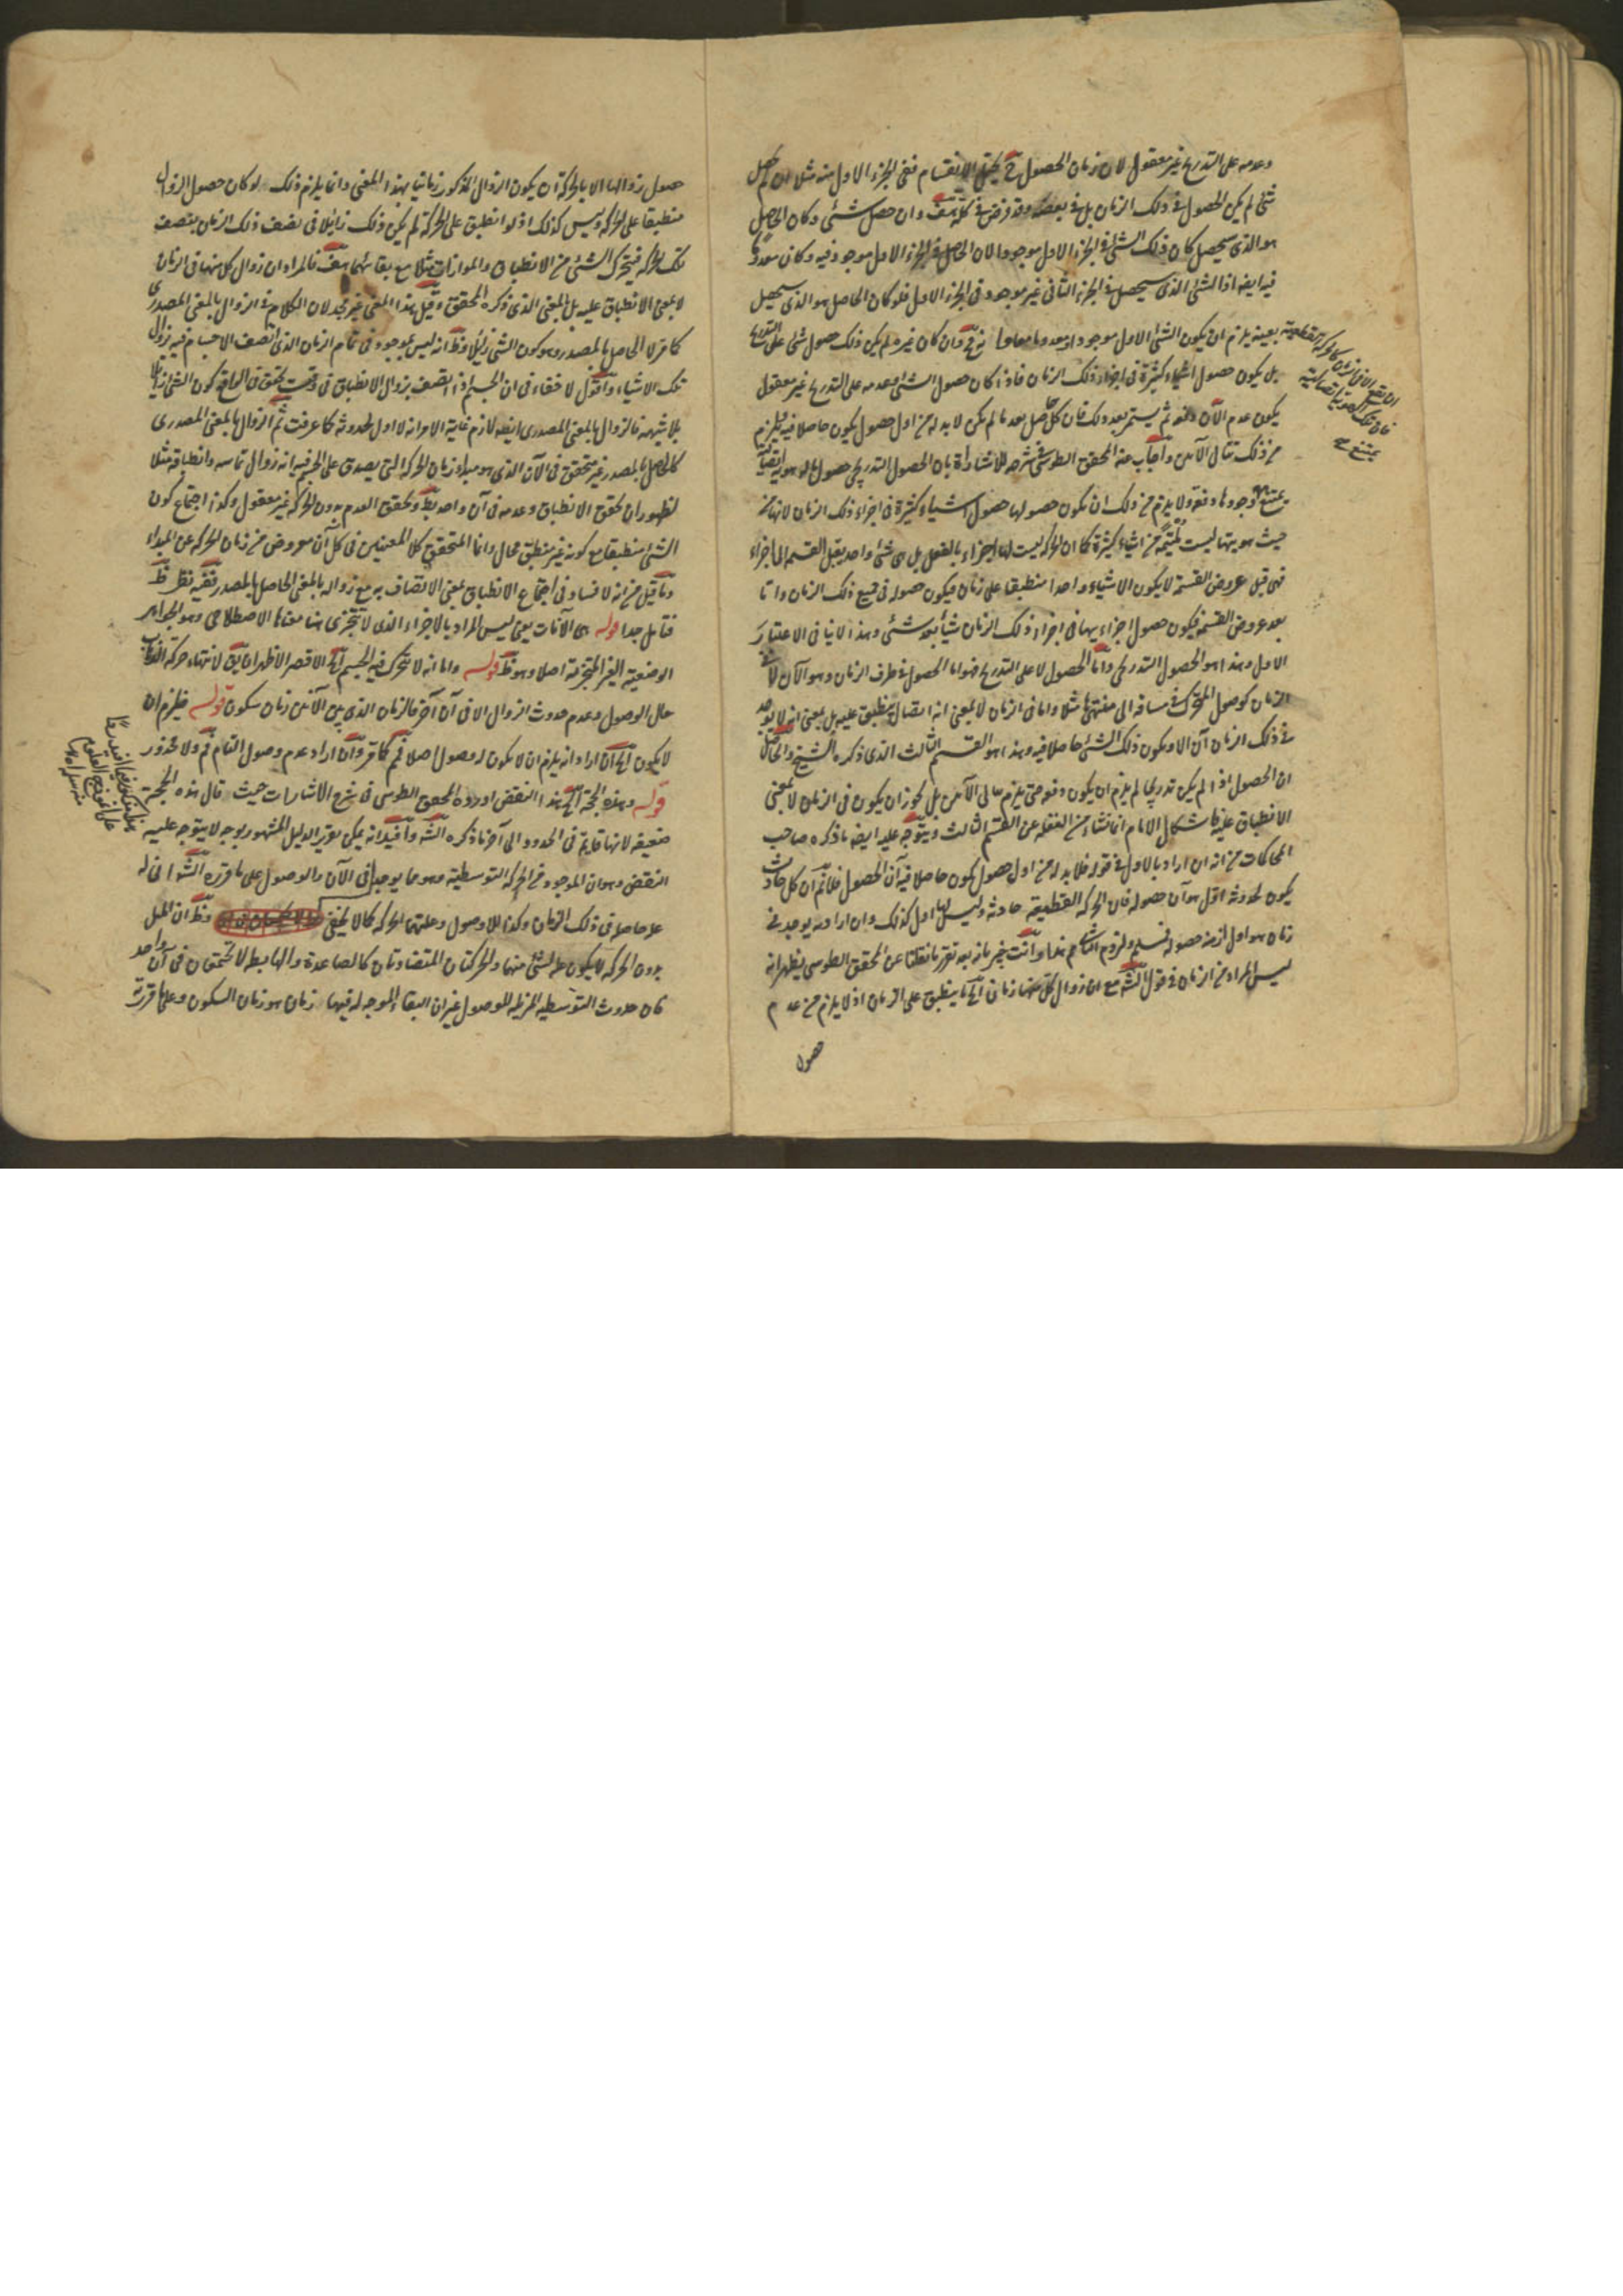 وعدمه على التدريج غير معقول لان زمان الحصول ح يحتمل الانقسام ففى الجزء الاول منه مثلا ان لم يحصل
شئ لم يكن الحصول فى ذلك الزمان بل فى بعضه وقد فرض فى كله هف وان حصل شئ وكان الحاصل
هو الذى سيحصل كان ذلك الشئ فى الجزء الاول موجودا لان الحاصل فى الجزء الاول موجود فيه وكان معدوما
فيه ايضا اذ الشئ الذى سيحصل فى الجزء الثانى غير موجود فى الجزء الاول فلو كان الحاصل هو الذى سيحصل
بعينه يلزم ان يكون الشئ الاول موجودا ومعدوما معا وان كان غيره لم يكن ذلك حصول شئ على التدريج
بل يكون حصول اشياء كثيرة فى اجزاء ذلك الزمان فاذا كان حصول الشئ وعدمه على التدريج غير معقول
يكون عدم الآن دفعة ثم يستمر بعد ذلك فان كل حاصل بعد ما لم يكن لا بد له من اول حصول يكون حاصلا فيه فيلزم
من ذلك تتالى الآنين واجاب عنه المحقق الطوسى فى شرحه للاشارات بان الحصول التدريجى حصول ما له هوية اتصالية
يمتنع وجودها دفعة ولا يلزم من ذلك ان يكون حصولها حصول اشياء كثيرة فى اجزاء ذلك الزمان لانها من
حيث هويتها ليست ملتئمة من اشياء كثيرة كما ان الحركة ليست لها اجزاء بالفعل بل هى شئ واحد يقبل القسمة الى اجزاء
فهى قبل عروض القسمة لا يكون الا شيئا واحدا منطبقا على زمان فيكون حصوله فى جميع ذلك الزمان واما
بعد عروض القسمة فيكون حصول اجزاءها فى اجزاء ذلك الزمان شيئا بعد شئ وهذا لا ينافى الاعتبار
الاول وهذا هو الحصول التدريجى واما الحصول لا على التدريج فهو اما الحصول فى طرف الزمان وهو الآن لا فى
الزمان كوصول المتحرك فى مسافة الى منتهيها مثلا واما فى الزمان لا بمعنى انه اتصالى ينطبق عليه بل بمعنى انه لا يوجد
فى ذلك الزمان آن الا ويكون ذلك الشئ حاصلا فيه وهذا هو القسم الثالث الذى ذكره الشيخ والحاصل
ان الحصول اذا لم يكن تدريجيا لم يلزم ان يكون دفعة حتى يلزم تتالى الآنين بل يجوز ان يكون فى الزمان لا بمعنى
الانطباق عليه فاشكال الامام انما نشاء من الغفلة عن القسم الثالث ويتوجه عليه ايضا ما ذكره صاحب
المحاكمات من انه ان اراد بالاول فى قوله فلا بد له من اول حصول يكون حاصلا فيه آن الحصول فلا نم ان كل حادث
يكون لحدوثه اول هو آن حصوله فان الحركة القطعية حادثة وليس لها اول كذلك وان اراد به يوجد فى
زمان هو اول ازمنة حصوله فمسلم ولزوم التتالى مم هذا وانت خبير بانه بعد تقرر ما نقلنا عن المحقق الطوسى يظهر انه
ليس المراد من الزمان فى قول الشه مع ان زوال كل منهما زمانى الخ ما ينطبق على الزمان اذ لا يلزم من عدم
حصول
كالحركة القطعية
يمتنع
حصول زوالها الا بالحركة ان يكون الزوال المذكور زمانيا بهذا المعنى وانما يلزم ذلك لو كان حصول الزوال
منطبقا على الحركة وليس كذلك اذ لو انطبق على الحركة لم يكن ذلك زائلا فى نصف ذلك الزمان بنصف
تلك الحركة فيتحرك الشئ من الانطباق والموازات مثلا مع بقائهما هف فالمراد ان زوال كل منهما فى الزمان
لا بمعنى الانطباق عليه بل بالمعنى الذى ذكره المحقق وقيل هذا المعنى غير مجد لان الكلام فى الزوال بالمعنى المصدرى
كما مر لا الحاصل بالمصدر وهو كون الشئ زائلا وظ انه ليس بموجود فى تمام الزمان الذى اتصف الاجسام فيه بزوال
تلك الاشياء واقول لا خفاء فى ان الجسم اذا اتصف بزوال الانطباق فى وقت تحقق فى الواقع كون الشئ زائلا
بلا شبهة فالزوال بالمعنى المصدرى ايضا لازم غاية الامر انه لا اول لحدوثه كما عرفت ثم الزوال بالمعنى المصدرى
كالحاصل بالمصدر غير متحقق فى الآن الذى هو مبداء زمان الحركة التى يصدق على الجسم فيه انه زوال تماسه وانطباقه مثلا
لظهور ان تحقق الانطباق وعدمه فى آن واحد بط وتحقق العدم بدون الحركة غير معقول وكذا اجتماع كون
الشئ منطبقا مع كونه غير منطبق محال وانما المتحقق كلا المعنيين فى كل آن مفروض من زمان الحركة عن المبداء
وما قيل من انه لا فساد فى اجتماع الانطباق بمعنى الاتصاف به مع زواله بالمعنى الحاصل بالمصدر ففيه نظر ظ
فتأمل جدا قوله هى الآنات يعنى ليس المراد بالاجزاء الذى لا يتجزى هنا معناها الاصطلاحى وهو الجواهر
الوضعية الغير المتجزئة اصلا وهو ظ قوله واما انه لا يتحرك فيه الجسم الخ الاقصر الاظهر ان يق لانتهاء حركة الذهاب
حال الوصول وعدم حدوث الزوال الا فى آن آخر فالزمان الذى بين الآنين زمان سكون قوله فيلزم ان
لا يكون الخ ان اراد انه يلزم ان لا يكون له وصول اصلا فمم كما مر وان اراد عدم وصول التمام فمم ولا محذور
قوله وهذه الحجة الخ هذا النقض اورده المحقق الطوسى فى شرح الاشارات حيث قال هذه الحجة
ضعيفة لانها قائمة فى الحدود الى آخر ما ذكره الشه وافيد انه يمكن تقرير الدليل المشهور بوجه لا يتوجه عليه
النقض وهو ان الموجود من الحركة التوسطية وهو مما يوجد فى الآن والوصول على ما قرره الشه آنى له
علة حاصلا فى ذلك الزمان وكذا اللاوصول وعلتهما الحركة كما لا يخفى وظ ان الميل
بدون الحركة لا يكون علة لشئ منهما والحركتان المتضادتان كالصاعدة والهابطة لا تجتمعان فى آن واحد
فان حدوث التوسطية المزيلة للوصول غير ان البقاء الموجد له فبينهما زمان هو زمان السكون وعلى ما قررته